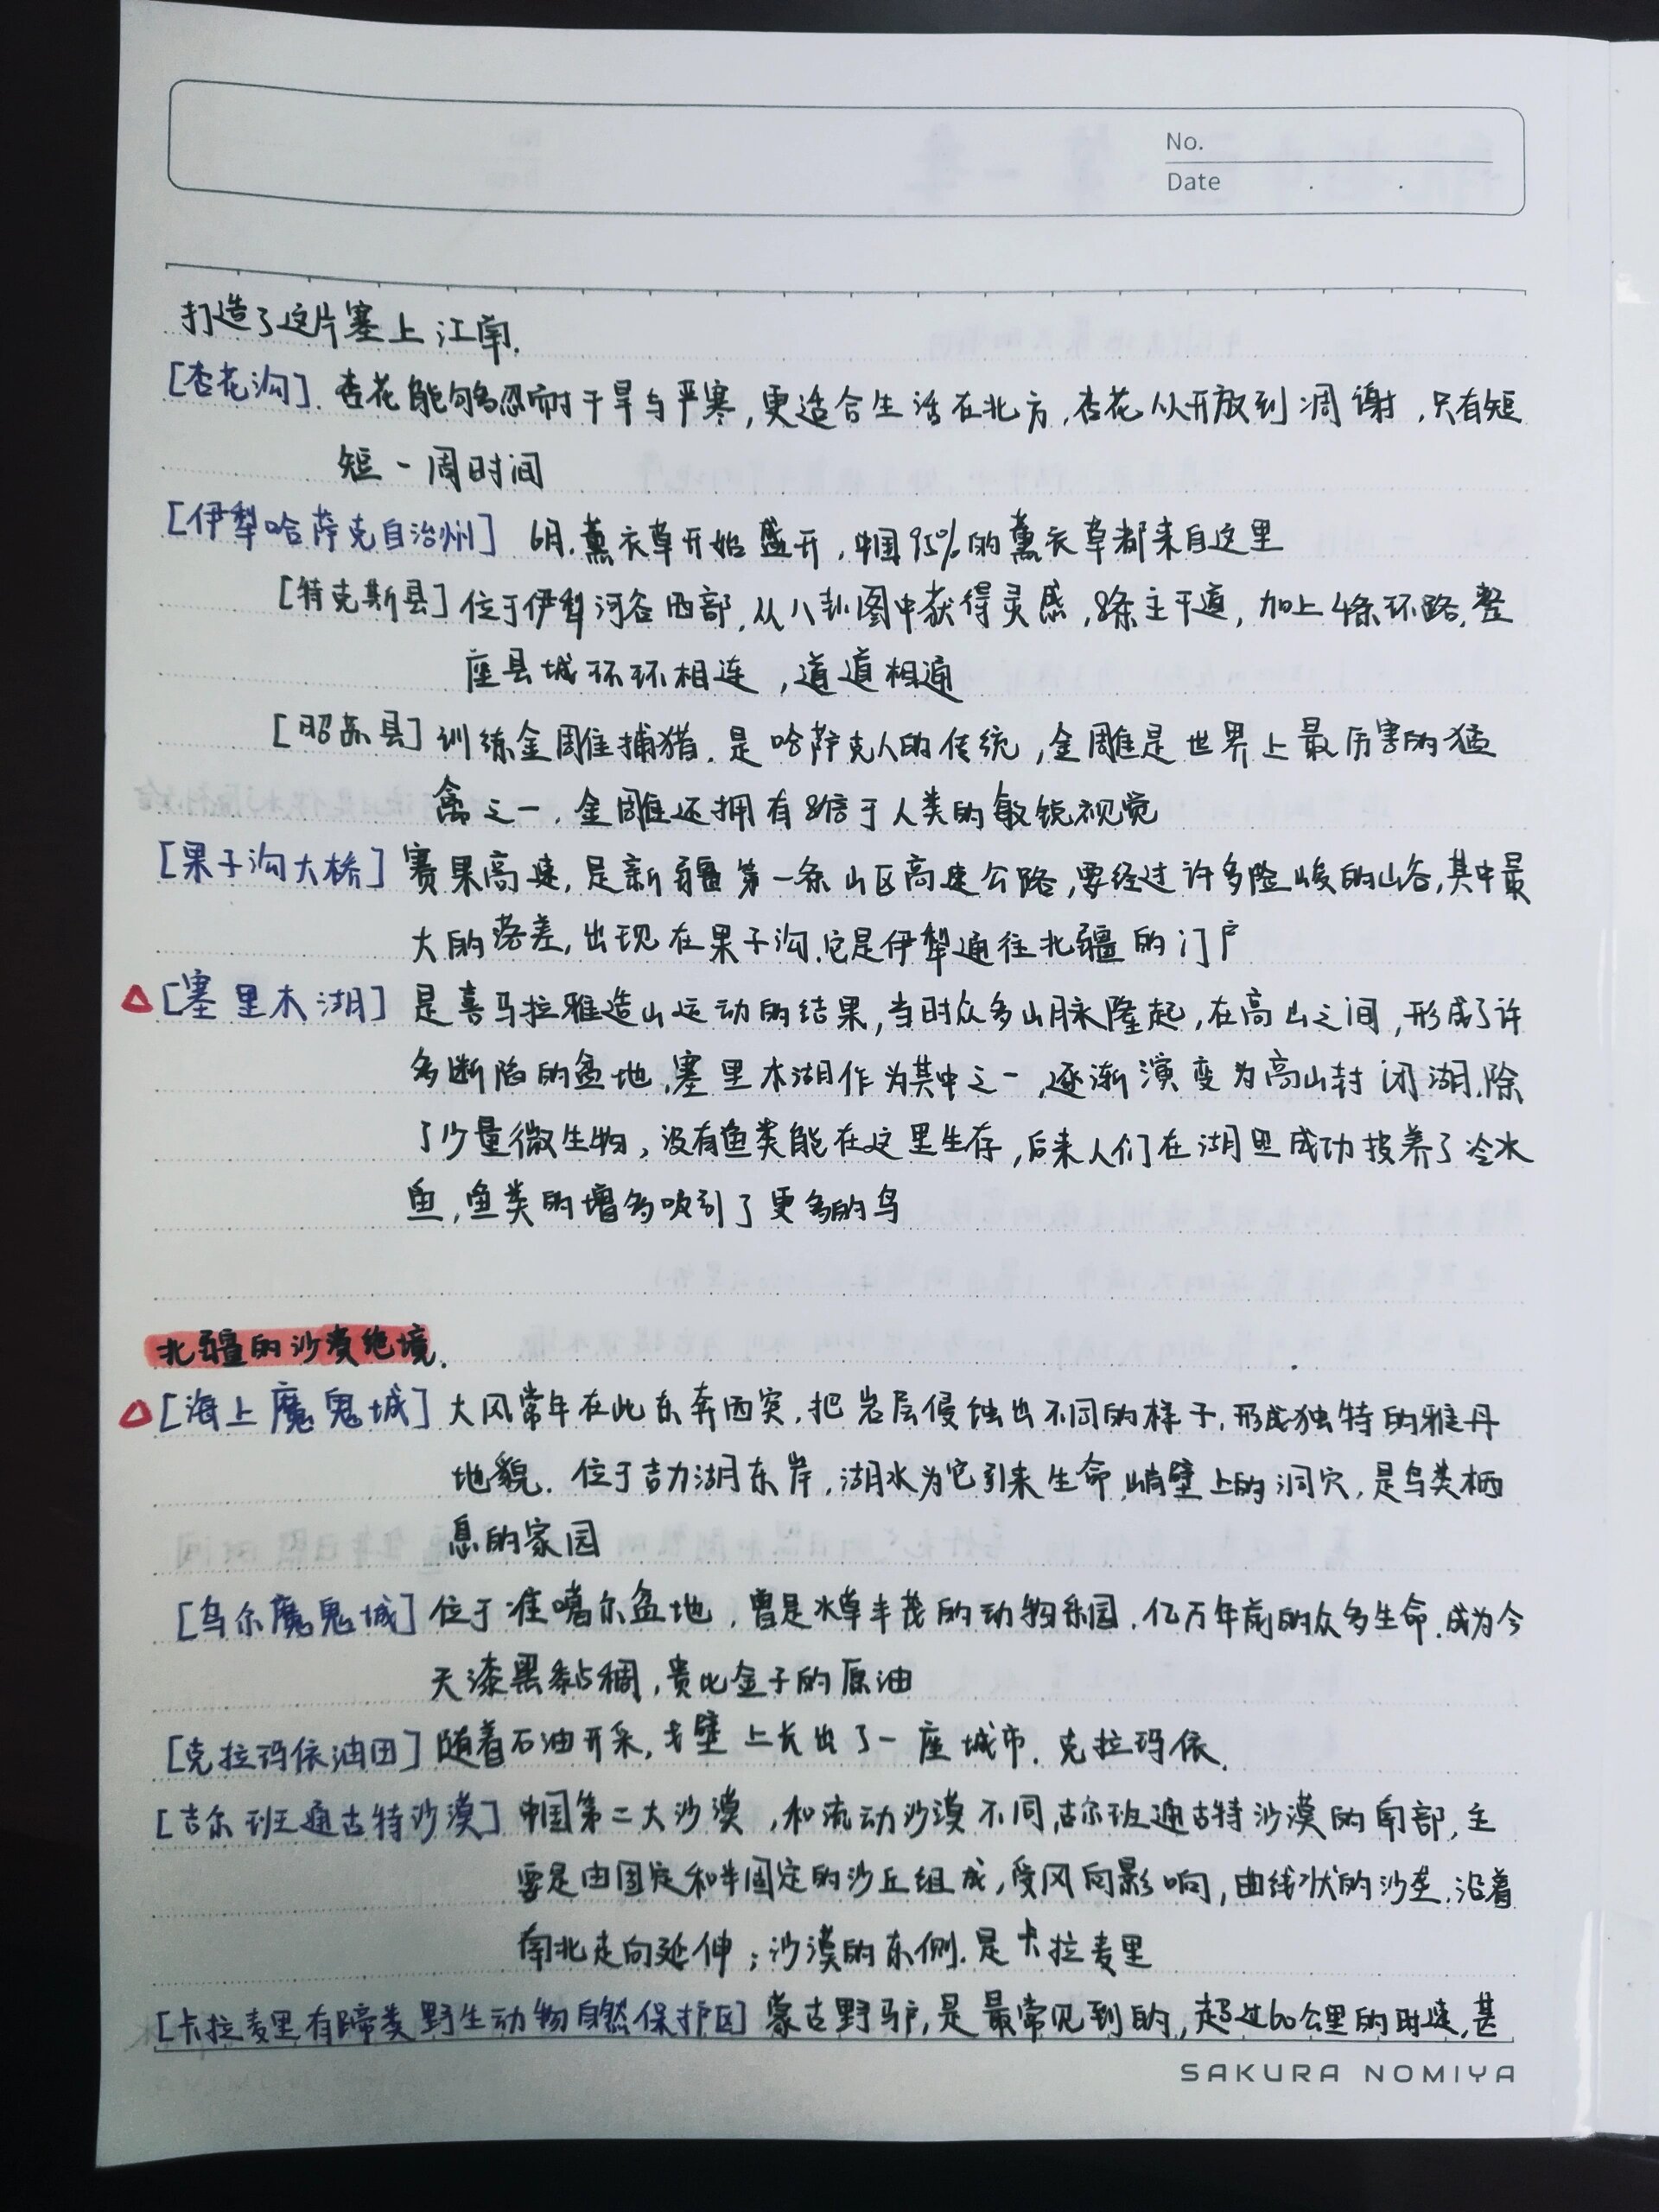 No.
Date
打造了这片塞上江南.
[杏花沟]. 杏花能够忍耐干旱与严寒,更适合生活在北方,杏花从开放到凋谢,只有短
短一周时间
[伊犁哈萨克自治州] 6月,薰衣草开始盛开,中国95%的薰衣草都来自这里
[特克斯县] 位于伊犁河谷西部,从八卦图中获得灵感,8条主干道,加上4条环路,整
座县城环环相连,道道相通
[昭苏县] 训练金雕捕猎,是哈萨克人的传统,金雕是世界上最厉害的猛
禽之一,金雕还拥有8倍于人类的敏锐视觉
[果子沟大桥] 赛果高速,是新疆第一条山区高速公路,要经过许多险峻的山谷,其中最
大的落差,出现在果子沟,它是伊犁通往北疆的门户
△[塞里木湖] 是喜马拉雅造山运动的结果,当时众多山脉隆起,在高山之间,形成了许
多断陷的盆地,塞里木湖作为其中之一,逐渐演变为高山封闭湖,除
了少量微生物,没有鱼类能在这里生存,后来人们在湖里成功投养了冷水
鱼,鱼类的增多吸引了更多的鸟
北疆的沙漠绝境.
△[海上魔鬼城] 大风常年在此东奔西突,把岩层侵蚀出不同的样子,形成独特的雅丹
地貌. 位于吉力湖东岸,湖水为它引来生命,峭壁上的洞穴,是鸟类栖
息的家园
[乌尔魔鬼城] 位于准噶尔盆地,曾是水草丰茂的动物乐园,亿万年前的众多生命,成为今
天漆黑黏稠,贵比金子的原油
[克拉玛依油田] 随着石油开采,戈壁上长出了一座城市,克拉玛依.
[吉尔班通古特沙漠] 中国第二大沙漠,和流动沙漠不同,古尔班通古特沙漠的南部,主
要是由固定和半固定的沙丘组成,受风向影响,曲线状的沙垄,沿着
南北走向延伸;沙漠的东侧,是卡拉麦里
[卡拉麦里有蹄类野生动物自然保护区] 蒙古野驴,是最常见到的,超过60公里的时速,甚
SAKURA NOMIYA